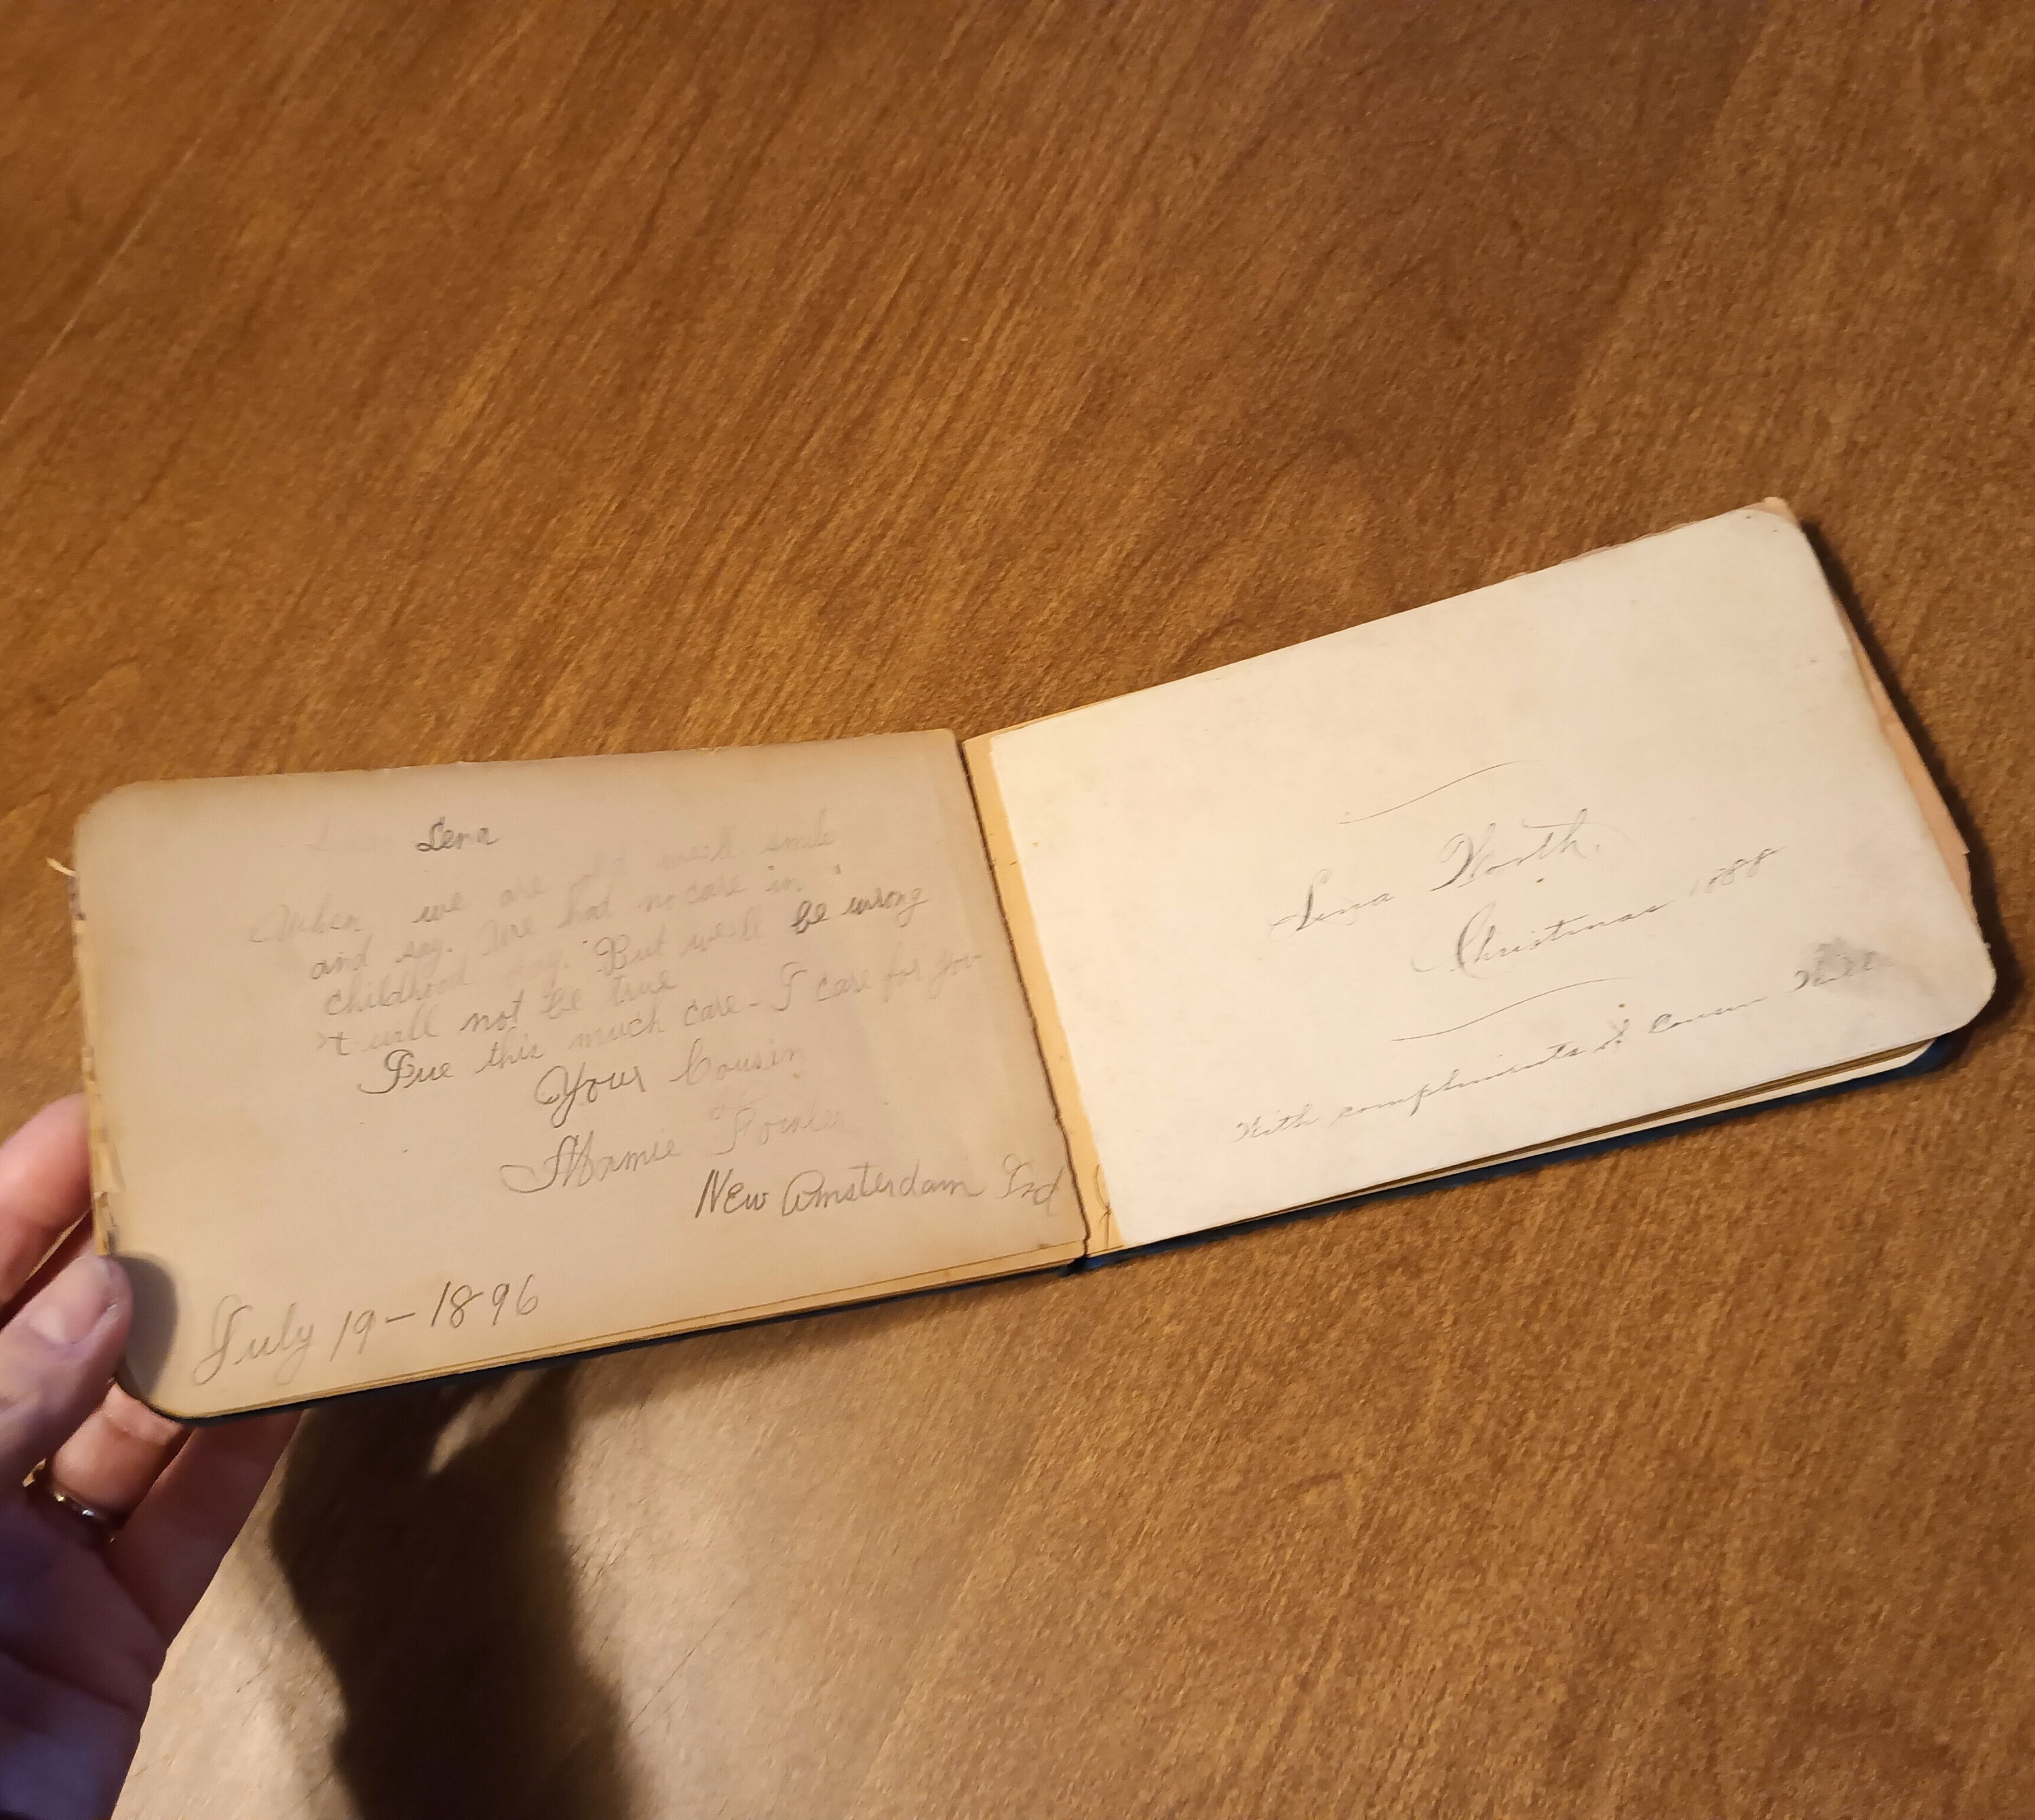 Lena
When we are old we'll smile
and say. We had no care in
childhood day. But we'll be wrong
't will not be true
I've this much care - I care for you
Your Cousin
Mamie Fowler
New Amsterdam Ind
July 19 - 1896
Lena Worth.
Christmas 1888
With compliments of Cousin Will